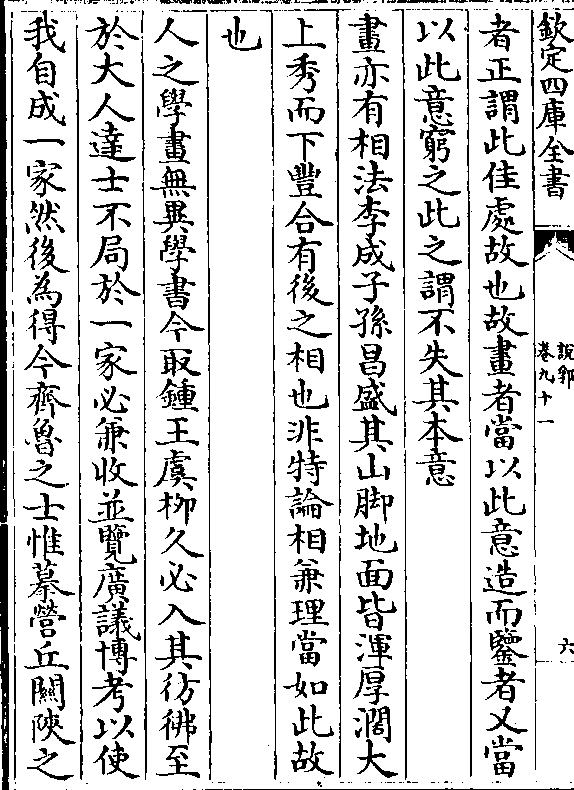 欽定四庫全書
說郛
卷九十一
六
者正謂此佳處故也故畫者當以此意造而鑒者又當
以此意窮之此之謂不失其本意
畫亦有相法李成子孫昌盛其山脚地面皆渾厚濶大
上秀而下豐合有後之相也非特論相兼理當如此故
也
人之學畫無異學書今取鍾王虞柳久必入其彷彿至
於大人達士不局於一家必兼收並覽廣議博考以使
我自成一家然後為得今齊魯之士惟摹營丘關陝之